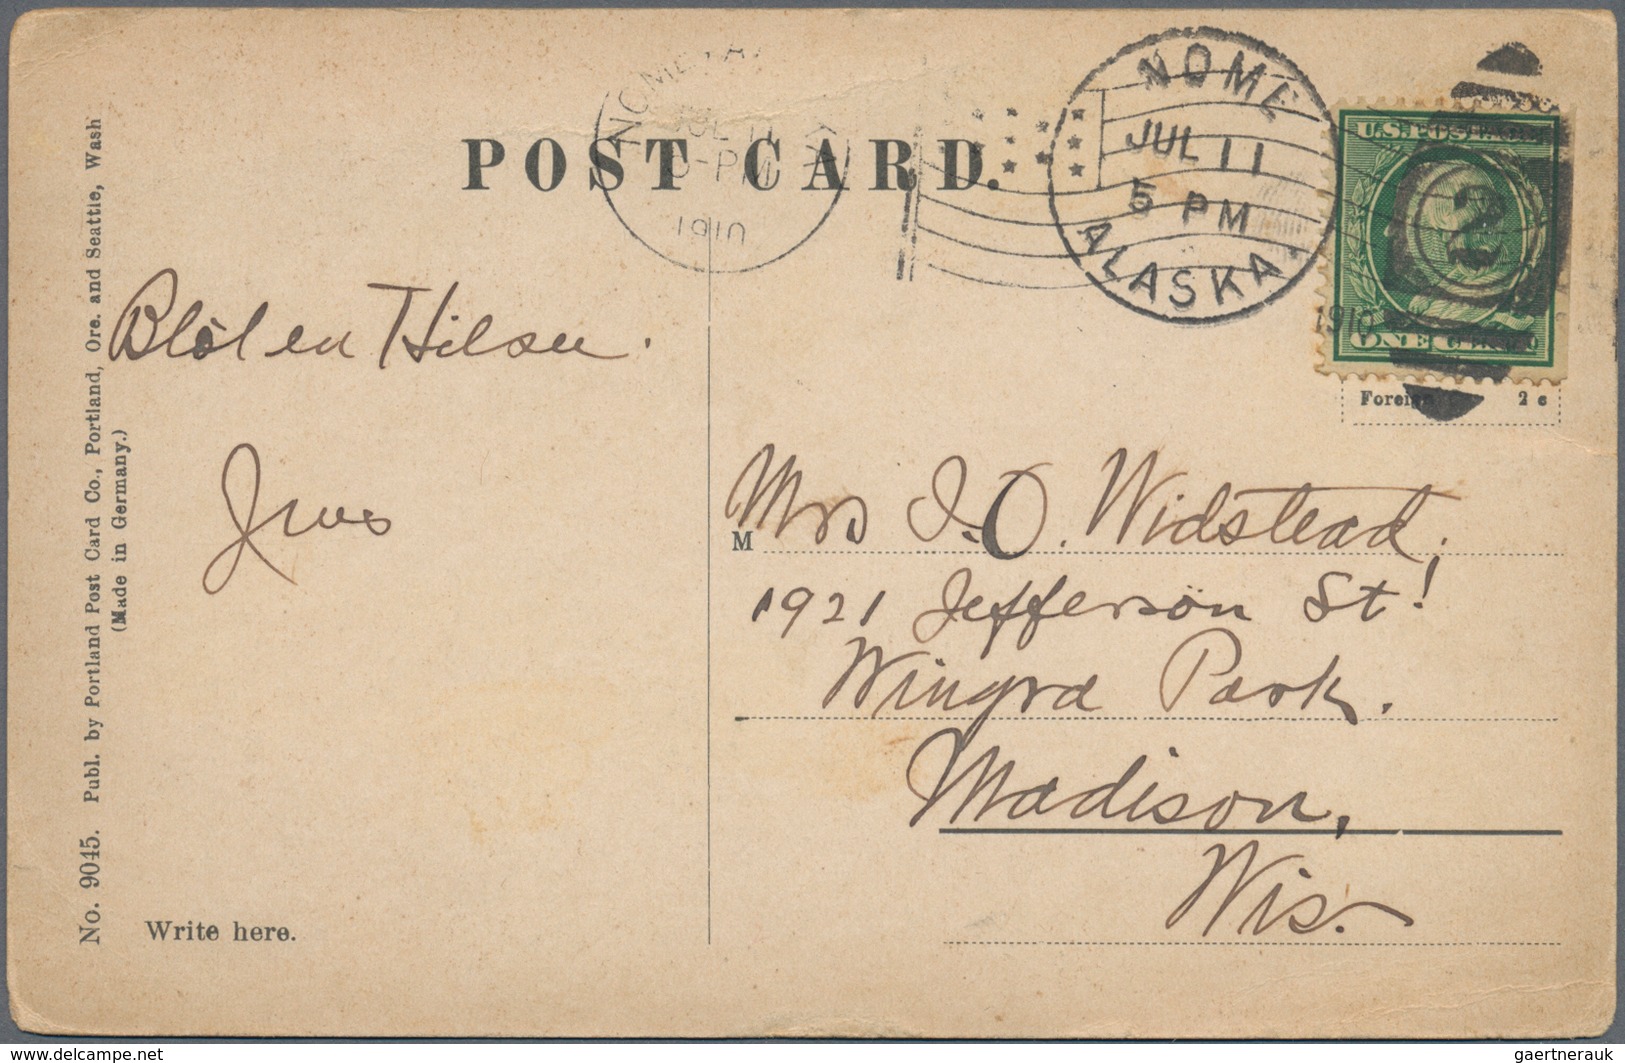 POST CARD.
NOME
JUL 11
5 PM
ALASKA.
1910
JUL 11
-PM
1910
U.S. POSTAGE
2
ONE CENT
Foreign 2 c
No. 9045. Publ. by Portland Post Card Co., Portland, Ore. and Seattle, Wash
(Made in Germany.)
Blöt en Hilsen.
M
Mrs J.O. Widstead,
1921 Jefferson St!
Wingra Park.
Madison,
Wis.
Write here.
www.delcampe.net
gaertnerauk